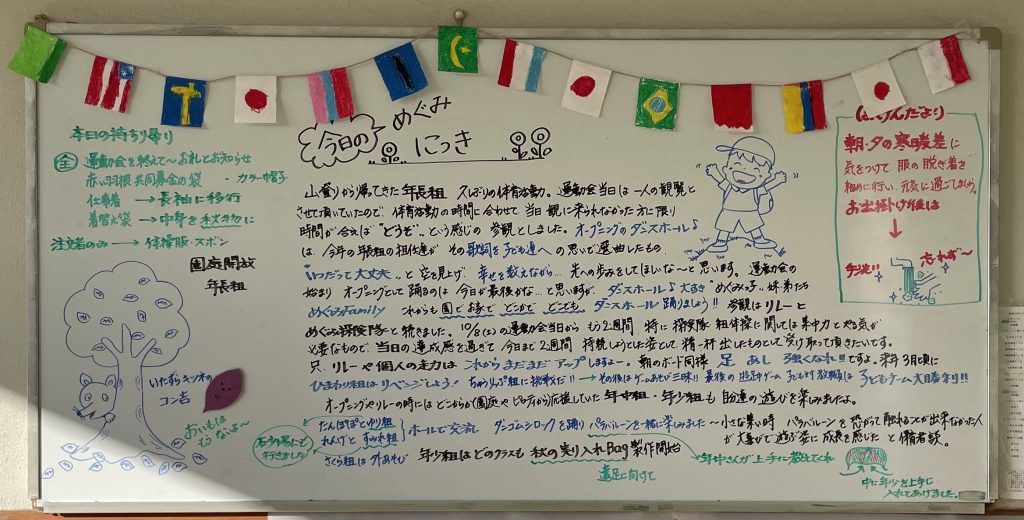 本日の持ち帰り
全 運動会を終えて〜お礼とお知らせ
赤い羽根共同募金の袋 ・カラー帽子
仕事着 → 長袖に移行
着替え袋 → 中身を秋冬物に
注文者のみ → 体操服・ズボン
園庭開放
年長組
いたずらキツネの
コン吉
おいもは
もうないよ〜
今日の めぐみ
にっき
山登りから帰ってきた年長組 久しぶりの体育活動。運動会当日は一人の観覧と
させて頂いていたので、体育活動の時間に合わせて 当日観に来られなかった方に限り
時間が合えば"どうぞ"という感じの 参観としました。オープニングのダンスホール♪
は、今年の年長組の担任達が その歌詞を子ども達へ の思いで選曲したもの。
"いつだって大丈夫"と空を見上げ 幸せを数えながら… 先への歩みをしてほしいな〜と思います。運動会の
始まり オープニングとして踊るのは 今日が最後かな…と思いますが、ダンスホール♪大好き"めぐみっ子"姉弟たち
めぐみfamily これからも園でお家で どこかで どこでも ダンスホール踊りましょう!! 参観はリレーと
めぐみ探険隊と続きました。10/8(土)の運動会当日から もう2週間 特に 探険隊 組体操に関しては集中力とやる気が
必要なもので、当日の達成感を過ぎて 今日まで 2週間 持続しようとした姿として、精一杯出したものとして受け取って頂きたいです。
只、リレーや個人の走力は これからまだまだアップしますよー。朝のボード同様 足 あし 強くなれ!!ですよ。来年3月頃に
ひまわり組はリベンジしよう! ちゅうりっぷ組に挑戦だ!! → その後はゲームあそび三昧!! 最後の 巡廻ゲーム 子ども対教職員は 子どもチーム大勝利!!
オープニングやリレーの時にはどこからか(園庭や ピロティから)応援していた 年中組・年少組も 自由の遊びを楽しみましたよ。
たんぽぽとゆり組
れんげと すみれ組
ホールで交流 ダンゴムシロックを踊り パラバルーンを一緒に楽しみました 〜小さな集い時 パラバルーンを恐がって触れるコトが出来なかった人
が大喜びで遊ぶ姿に 成長を感じた と
さくら組は外あそび 年少組はどのクラスも 秋の実り入れBag製作開始
遠足に向けて
行きました
年中さんが上手に教えてくれ
中に年少を上手に
入れてあげました。
ほけんだより
朝・夕の寒暖差に
気をつけて、服の脱ぎ着を
こまめに行い、元気に過ごしましょう。
お出掛け後は
手洗い
忘れず〜